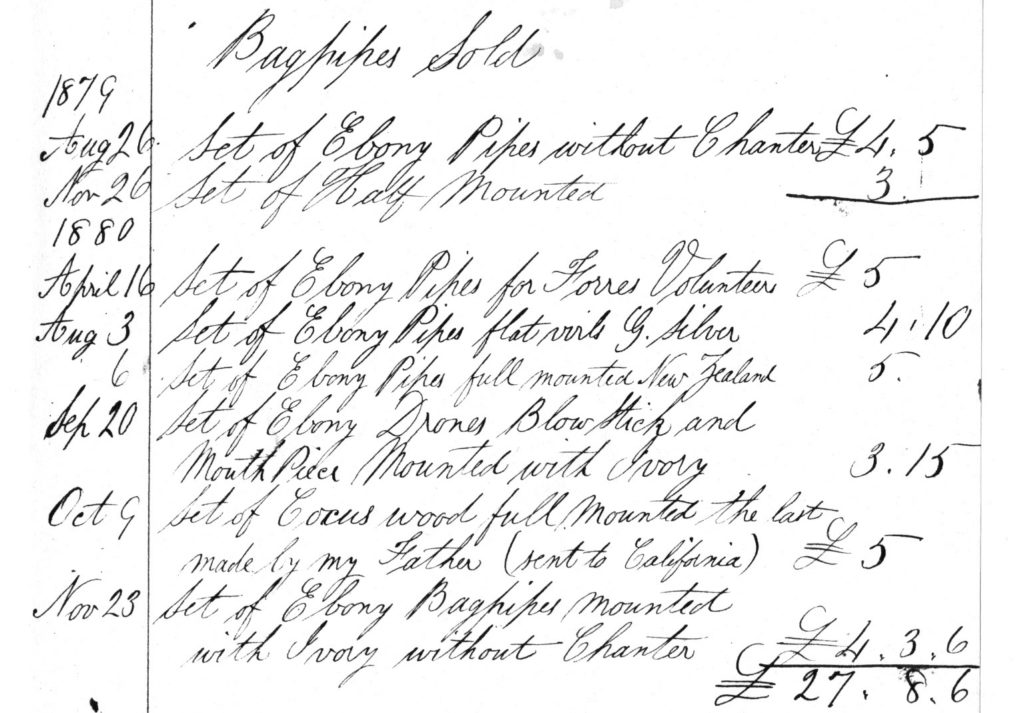 Bagpipes Sold
1879
Aug 26 Set of Ebony Pipes without Chanter £4. 5
Nov 26 Set of Half Mounted 3.
1880
April 16 Set of Ebony Pipes for Forres Volunteers £5
Aug 3 Set of Ebony Pipes flat virls G. Silver 4. 10
6 Set of Ebony Pipes full mounted New Zealand 5.
Sep 20 Set of Ebony Drones Blow Stick and
Mouth Piece Mounted with Ivory 3. 15
Oct 9 Set of Cocus wood full Mounted the last
made by my Father (sent to California) £5
Nov 23 Set of Ebony Bagpipes mounted
with Ivory without Chanter £4. 3. 6
£27. 8. 6